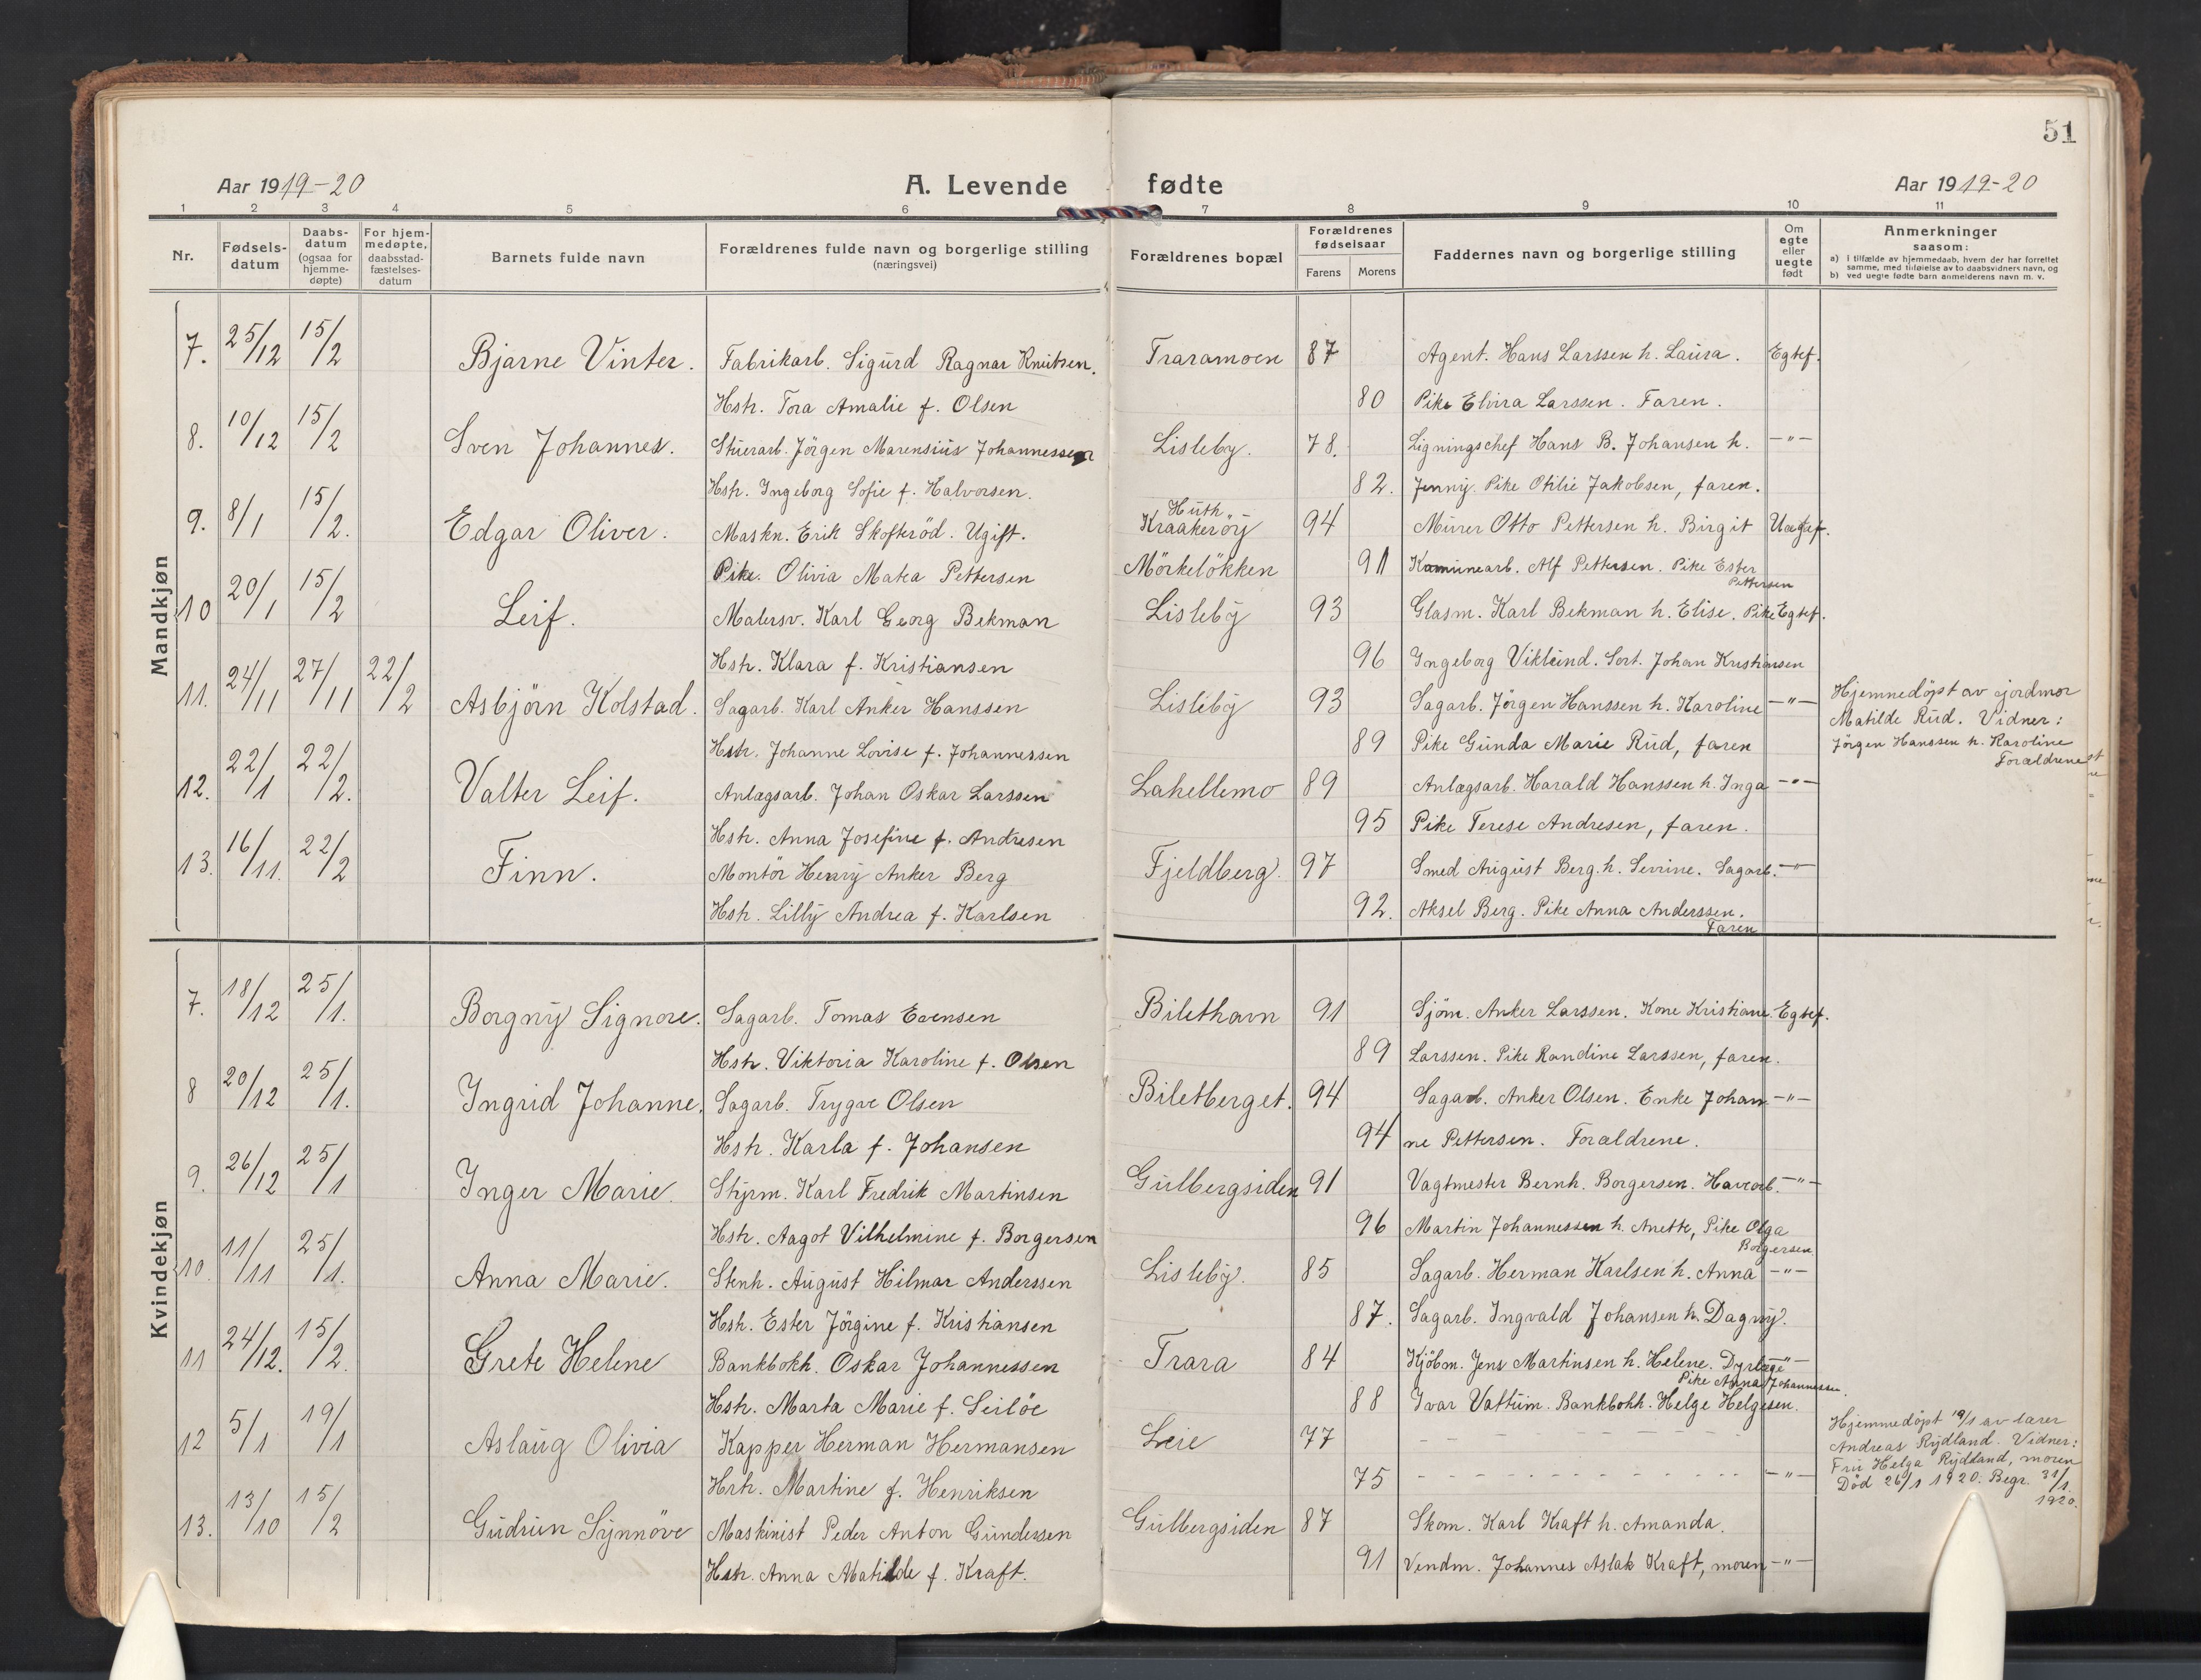 51
Aar 1919-20 A. Levende fødte Aar 1919-20
1 2 3 4 5 6 7 8 9 10 11
Nr. Fødsels-datum Daabs-datum (ogsaa for hjemme-døpte) For hjem-medøpte, daabsstad-fæstelses-datum Barnets fulde navn Forældrenes fulde navn og borgerlige stilling (næringsvei) Forældrenes bopæl Forældrenes fødselsaar Farens Morens Faddernes navn og borgerlige stilling Om egte eller uegte født Anmerkninger saasom: a) i tilfælde av hjemmedaab, hvem der har forrettet samme, med tilføielse av to daabsvidners navn, og b) ved uegte fødte barn anmelderens navn m. v.
Mandkjøn
7. 25/12 15/2 Bjarne Vinter. Fabrikarb. Sigurd Ragnar Knutsen. Traramoen 87 Agent. Hans Larssen h. Laura. Egtef.
Hstr. Tora Amalie f. Olsen 80 Pike Elvira Larssen. Faren.
8. 10/12 15/2 Sven Johannes. Stuerarb. Jörgen Marensius Johannessen Lisleby. 78. Ligningschef Hans B. Johansen h. -"-
Hstr. Ingeborg Sofie f. Halvorsen. 82. Jenny. Pike Otilie Jakobsen, faren.
9. 8/1 15/2. Edgar Oliver. Maskn. Erik Skofteröd. Ugift. Huth Kraakeröy 94 Murer Otto Pettersen h. Birgit Uegtef.
Pike. Olivia Matea Pettersen Mörkelökken 91 Komunearb. Alf Pettersen. Pike Ester Pettersen
10 20/1 15/2 Leif. Malersv. Karl Georg Bekman Lisleby 93 Glasm. Karl Bekman h. Elise. Pike Egtef.
Hstr. Klara f. Kristiansen 96 Ingeborg Viklund. Sort. Johan Kristiansen
11. 24/11 27/11 22/2 Asbjörn Kolstad. Sagarb. Karl Anker Hanssen Lisleby 93 Sagarb. Jörgen Hanssen h. Karoline -"- Hjemmedöpt av jordmor
Matilde Rud. Vidner:
Hstr. Johanne Lovise f. Johannessen 89 Pike Gunda Marie Rud, faren Jörgen Hanssen h. Karoline
Forældrene
12. 22/1 22/2. Valter Leif. Anlægsarb. Johan Oskar Larssen Lahellemo 89 Anlægsarb. Harald Hanssen h. Inga -"-
Hstr. Anna Josefine f. Andresen 95 Pike Terese Andresen, faren.
13. 16/11. 22/2 Finn. Montör Henry Anker Berg Fjeldberg. 97 Smed August Berg. h. Sevrine. Sagarb. -"-
Hstr. Lilly Andrea f. Karlsen 92. Aksel Berg. Pike Anna Anderssen. Faren
Kvindekjøn
7. 18/12 25/1. Borgny Signore. Sagarb. Tomas Evensen Bilethavn 91 Sjöm. Anker Larssen. Kone Kristiane Egtef.
Hstr. Viktoria Karoline f. Olsen 89 Larssen. Pike Randine Larssen, faren.
8 20/12 25/1. Ingrid Johanne. Sagarb. Trygve Olsen Biletberget. 94 Sagarb. Anker Olsen. Enke Johan -"-
Hstr. Karla f. Johansen 94 ne Pettersen. Forældrene.
9. 26/12 25/1 Inger Marie. Styrm. Karl Fredrik Martinsen Gulbergsiden 91 Vagtmester Bernh. Borgersen. Havearb. -"-
Hstr. Aagot Vilhelmine f. Borgersen 96 Martin Johannessen h. Anette, Pike Olga Borgersen
10. 11/11 25/1. Anna Marie. Stenh. August Hilmar Anderssen Lisleby. 85 Sagarb. Herman Karlsen h. Anna -"-
Hstr. Ester Jörgine f. Kristiansen 87. Sagarb. Ingvald Johansen h. Dagny.
11 24/12. 15/2. Grete Helene Bankbokh. Oskar Johannessen Trara 84 Kjöbm. Jens Martinsen h. Helene. Dyrlæge -"-
Pike Anna Johannessen.
Hstr. Marta Marie f. Seilöe 88 Ivar Vattum. Bankbokh. Helge Helgesen.
12 5/1 19/1 Aslaug Olivia Kapper Herman Hermansen Leie 77 - - - - - - Hjemmedöpt 19/1 av lærer
Andreas Rydland. Vidner:
Hstr. Martine f. Henriksen 75 - - - - - - -"- Fru Helga Rydland, moren
Död 26/1 1920. Begr. 31/1 1920.
13. 13/10 15/2 Gudrun Synnöve Maskinist Peder Anton Gundersen Gulbergsiden 87 Skom. Karl Kraft h. Amanda.
Hstr. Anna Matilde f. Kraft. 91 Vendm. Johannes Aslak Kraft, moren -"-